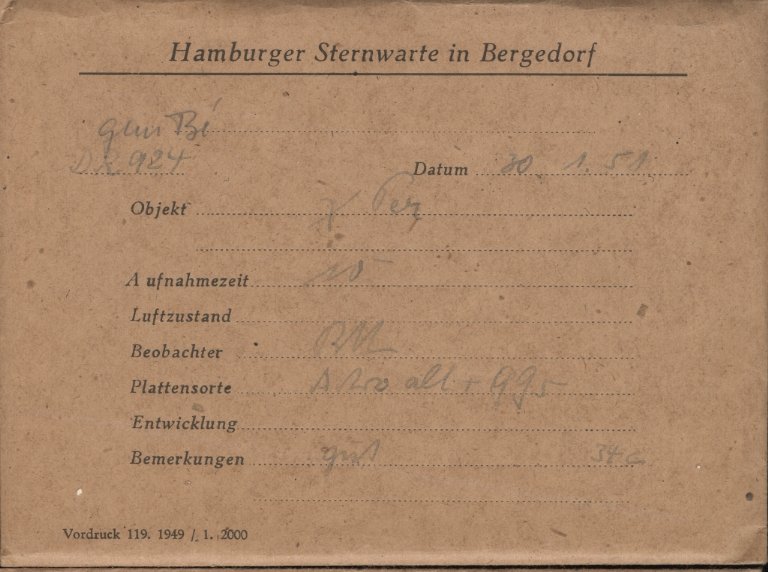 Hamburger Sternwarte in Bergedorf
gem Bé
DR 924 Datum 30. 1. 51
Objekt γ Per
Aufnahmezeit 10
Luftzustand
Beobachter
Plattensorte Astro alt
Entwicklung
Bemerkungen gut 34c
Vordruck 119. 1949 / 1. 2000